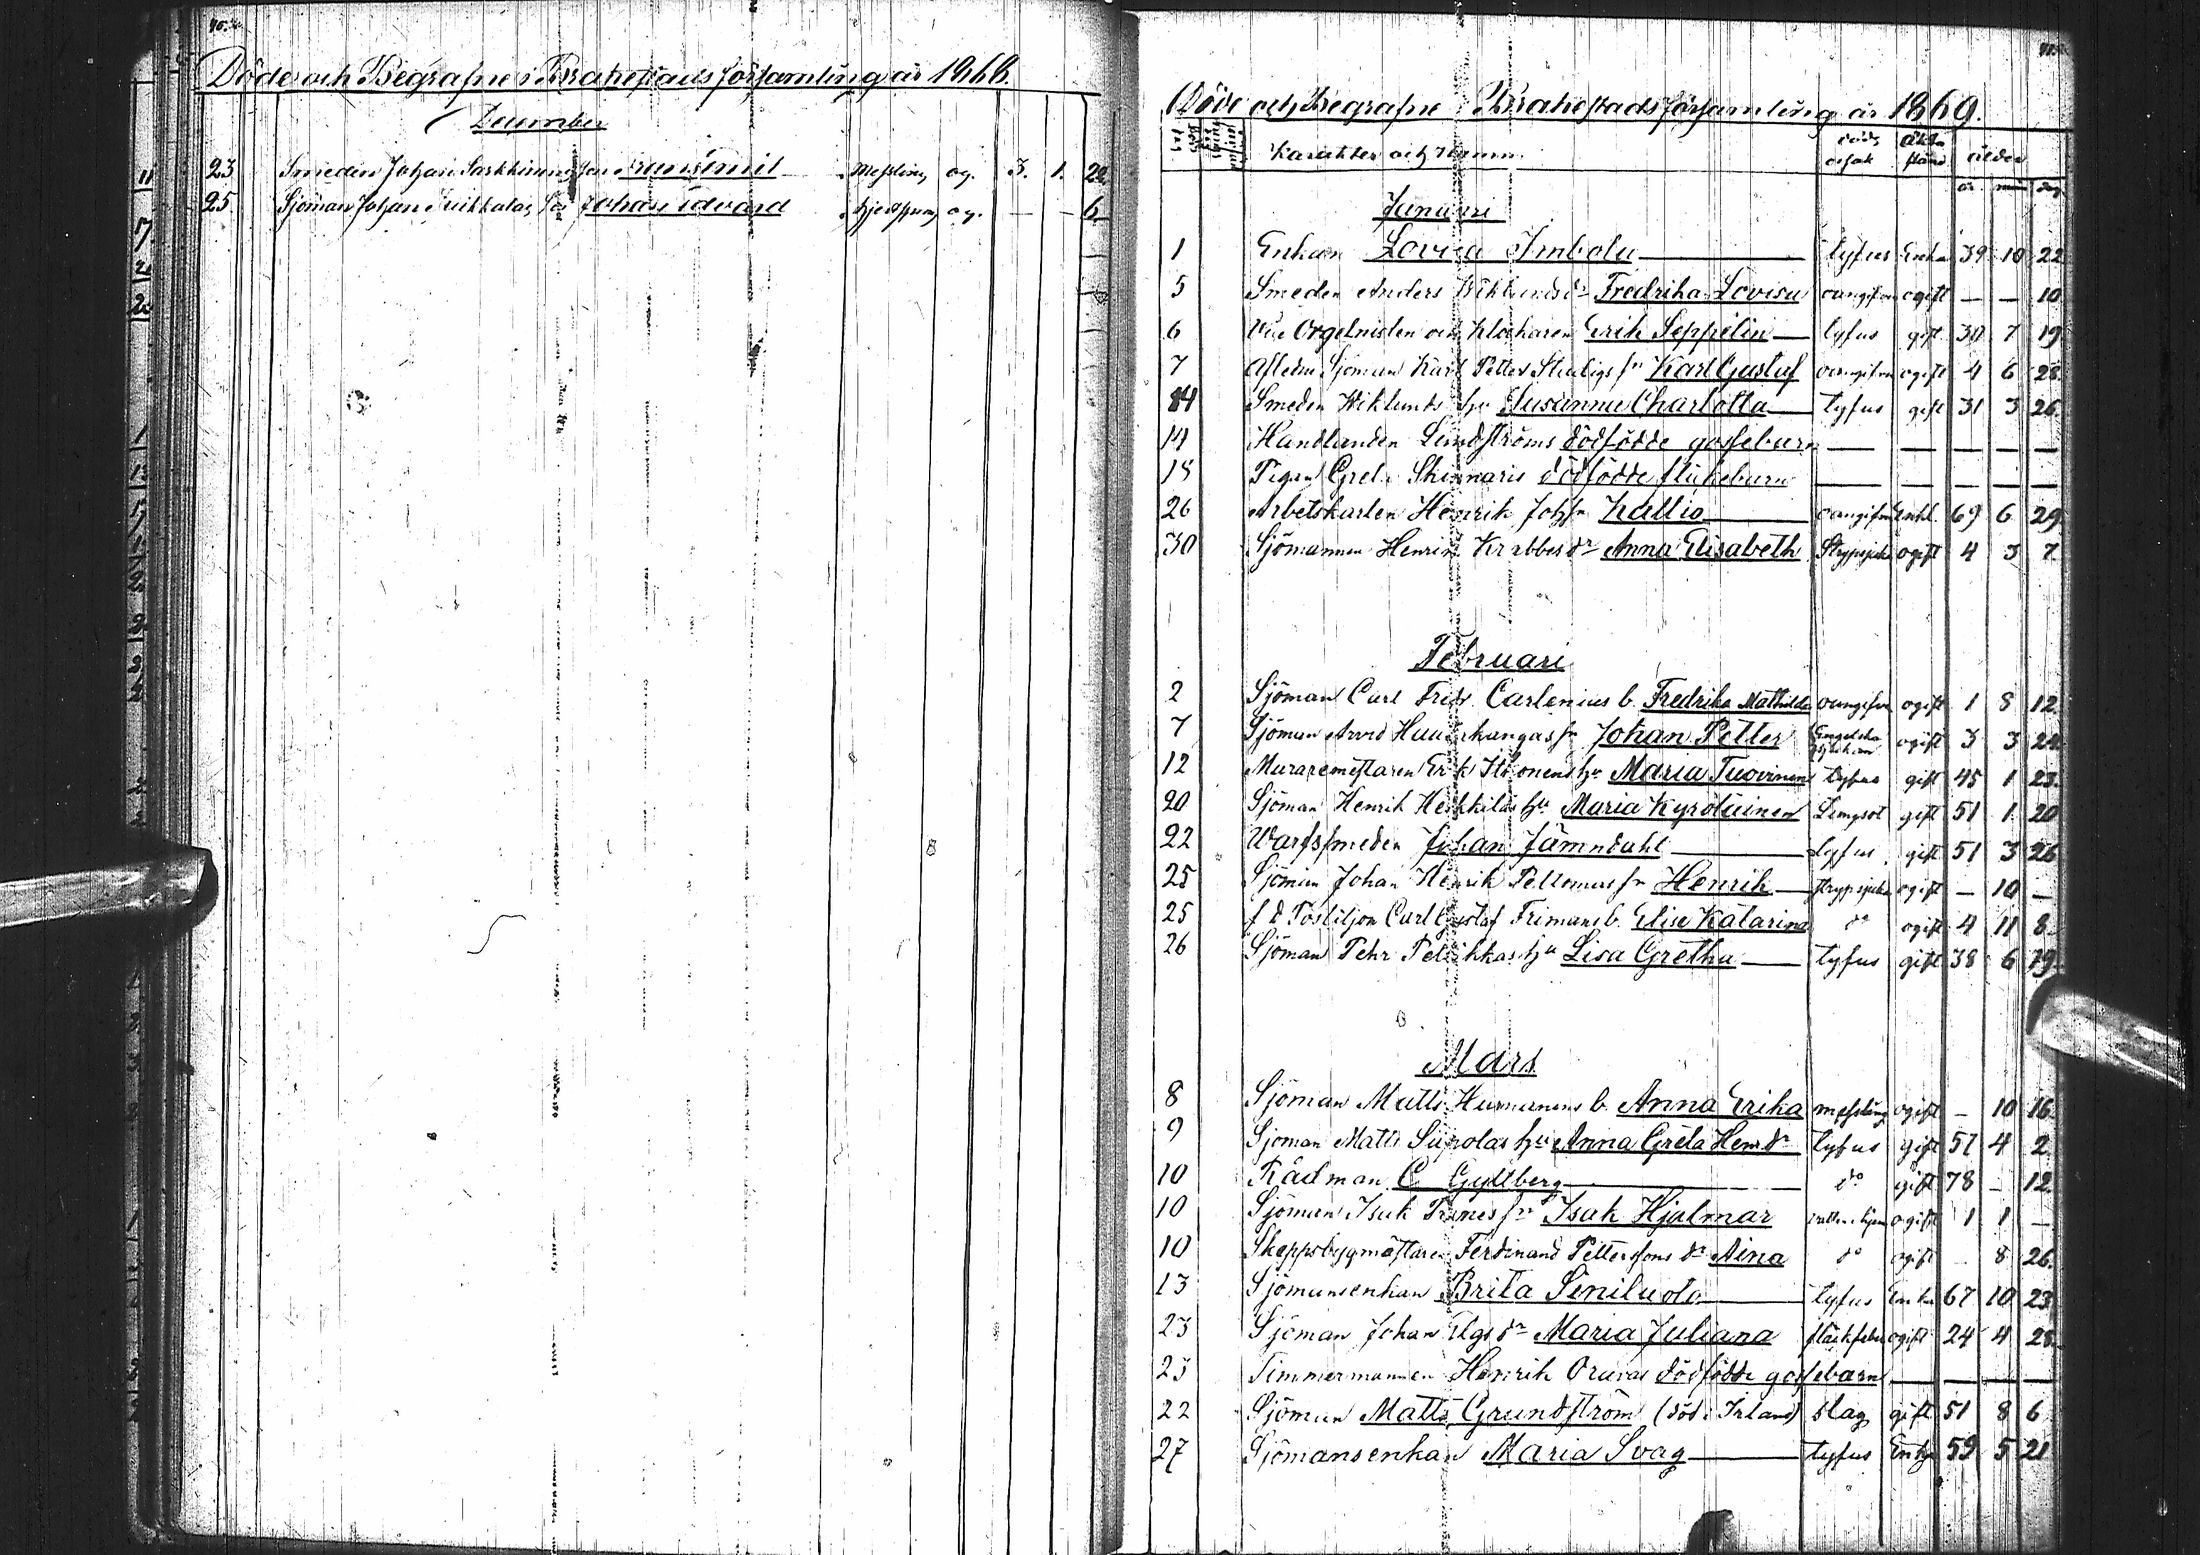 Döde och Begrafne i Brahestads församling år 1868.
December
23 Smeden Johan Saskkinens son Frans Emil Messling og. 3. 1. 22
25. Sjöman Johan son Johan Edvard og. — — 6
Döde och Begrafne i Brahestads församling år 1869.
Karakter och Namn döds orsak Äkta stånd ålder
år. mån dag
Januari
1 Enkan Lovisa Imbola tyfus Enka 39 10 22
5 Smeden Anders Wiklunds dr Fredrika Lovisa oangifven ogift — — 10
6 Vice Orgelnisten och Klockaren Erik Seppelin tyfus gift 30 7 19
7 Afledne Sjöman Karl Petter Stuligs sn Karl Gustaf oangifven ogift 4 6 28.
14 Smeden Wiklunds hu Susanna Charlotta tyfus gift 31 3 26.
14 Handlanden Lindströms dödfödde gossebarn — — — — —
18 Pigan Greta Skinnaris dödfödde flickebarn — — — — —
26 Arbetskarlen Henrik Johsn Kallio oangifven Enkl. 69 6 29.
30 Sjömannen Henrik Krabbes dr Anna Elisabeth Strypsjuka ogift 4 3 7
Februari
2 Sjöman Carl Fredr. Carlenius b. Fredrika Mathilda oangifven ogift 1 8 12
7 Sjöman Arvid Huuskangas sn Johan Petter Engelska sjukan ogift 3 3 24.
12 Muraremästaren Erik Itkonens hu Maria Tuovinen tyfus gift 45 1 23.
20 Sjöman Henrik Heikkiläs hu Maria Kyröläinen Lungsot gift 51 1. 20
22 Warfssmeden Johan Jämndahl tyfus gift 51 3 26
25 Sjöman Johan Henrik Peltomaas sn Henrik strypsjuka ogift — 10 —
25 f d Postiljon Carl Gustaf Frimans b. Elise Katarina do ogift 4 11 8.
26 Sjöman Pehr hu Lisa Gretha tyfus gift 38 6 19.
Mars
8 Sjöman Matts Humanens b. Anna Erika messling ogift — 10 16.
9 Sjöman Matts Sipolas hu Anna Greta Henr.dr tyfus gift 57 4 2.
10 Rådman C Gyllberg do gift 78 — 12
10 Sjöman Isak sn Isak Hjalmar ogift 1 1 —
10 Skeppsbygmästaren Ferdinand Petterssons dr Aina do ogift — 8 26.
13 Sjömansenkan Brita Siniluoto tyfus Enka 67 10 23
23 Sjöman Johan Elgs dr Maria Juliana fläckfeber ogift 24 4 28.
23 Timmermannen Henrik Oravas dödfödde gossebarn — — — —
22 Sjöman Matts Grundström (död i Irland) slag gift 51 8 6
27 Sjömansenkan Maria Svag tyfus Enka 59 5 21